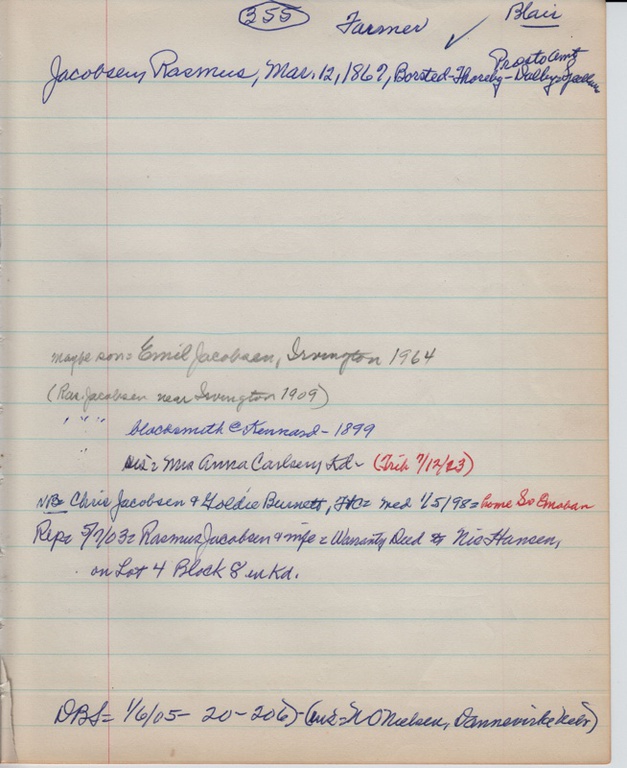 355 Farmer ✓ Blair
Præsto Amt
Jacobsen, Rasmus, Mar. 12, 1867, Borsted-Thoreby-Dalby
maybe son = Emil Jacobsen, Irvington 1964
(Ras. Jacobsen near Irvington 1909)
" " " blacksmith @ Kennard - 1899
" sis = Mrs Anna Carlsen, Kd - (Trib 7/12/23)
NB = Chris Jacobsen & Goldie Burnett, = med 1/5/98 = home So Omaha
Rep = 5/7/03 = Rasmus Jacobsen & wife = Warranty Deed to Nis Hansen,
on Lot 4 Block 8 in Kd.
DBS = 1/6/05 - 20 - 206) - N O Nielsen, Dannevirke